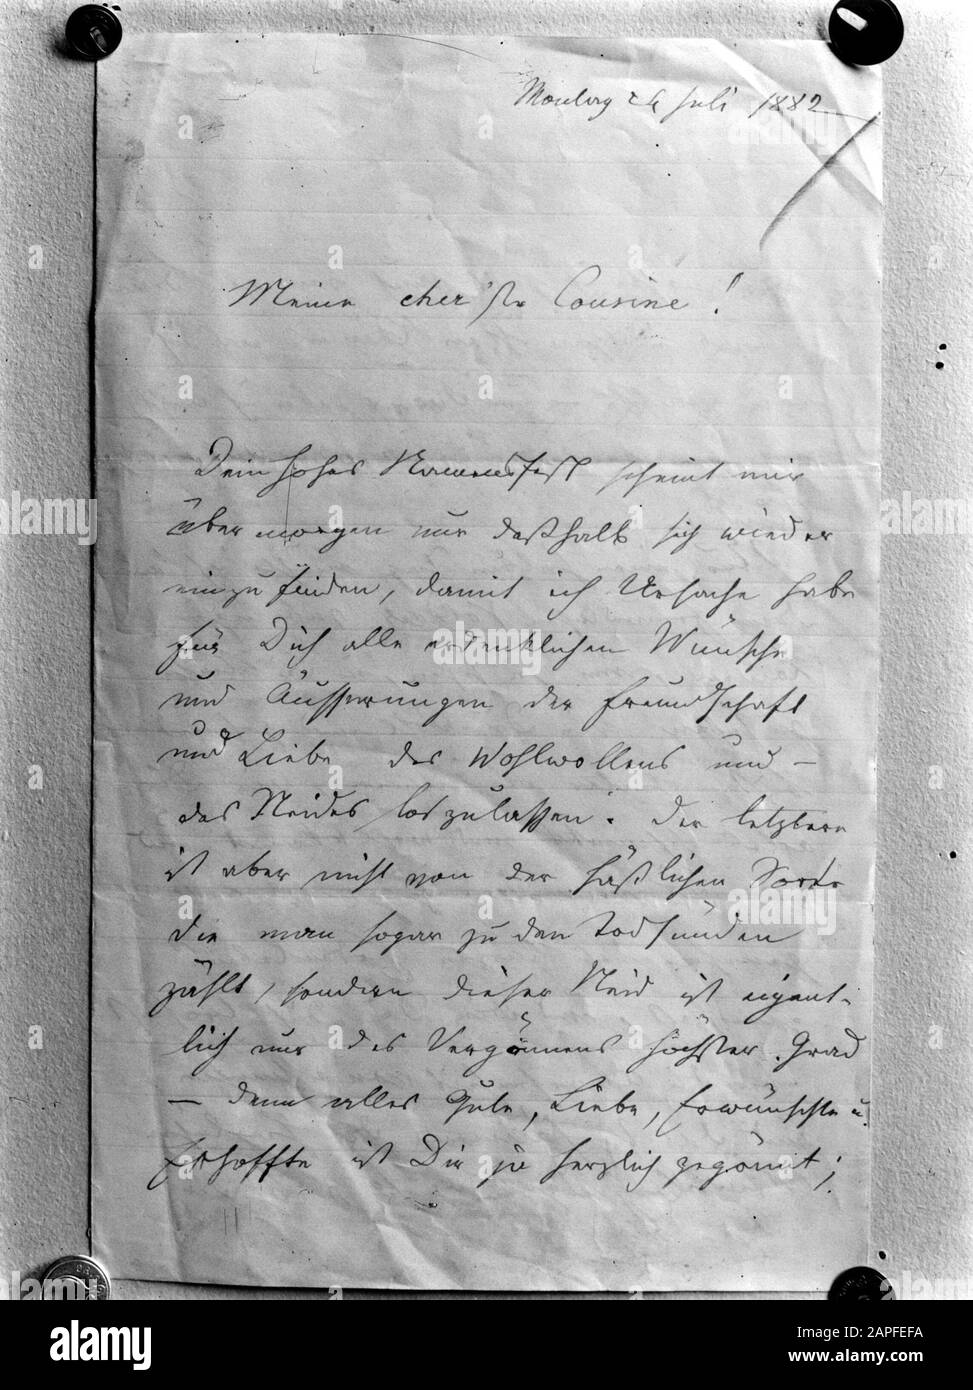 Montag 24 Juli 1882
Meine cher'ste Cousine!
Dein hohes Namensfest scheint mir
übermorgen nur deßhalb sich wieder
einzufinden, damit ich Ursache habe
für Dich alle erdenklichen Wünsche
und Äusserungen der Freundschaft
und Liebe des Wohlwollens und –
das Neides loszulassen. Der letztere
ist aber nicht von der häßlichen Sorte
die man sogar zu den Todsünden
zählt, sondern dieser Neid ist eigent-
lich nur des Vergönnens höchster Grad
– denn alles Gute, Liebe, Erwünschte u.
Erhoffte ist Dir ja herzlich gegönnt;
alamy
Image ID: 2APFEFA
www.alamy.com